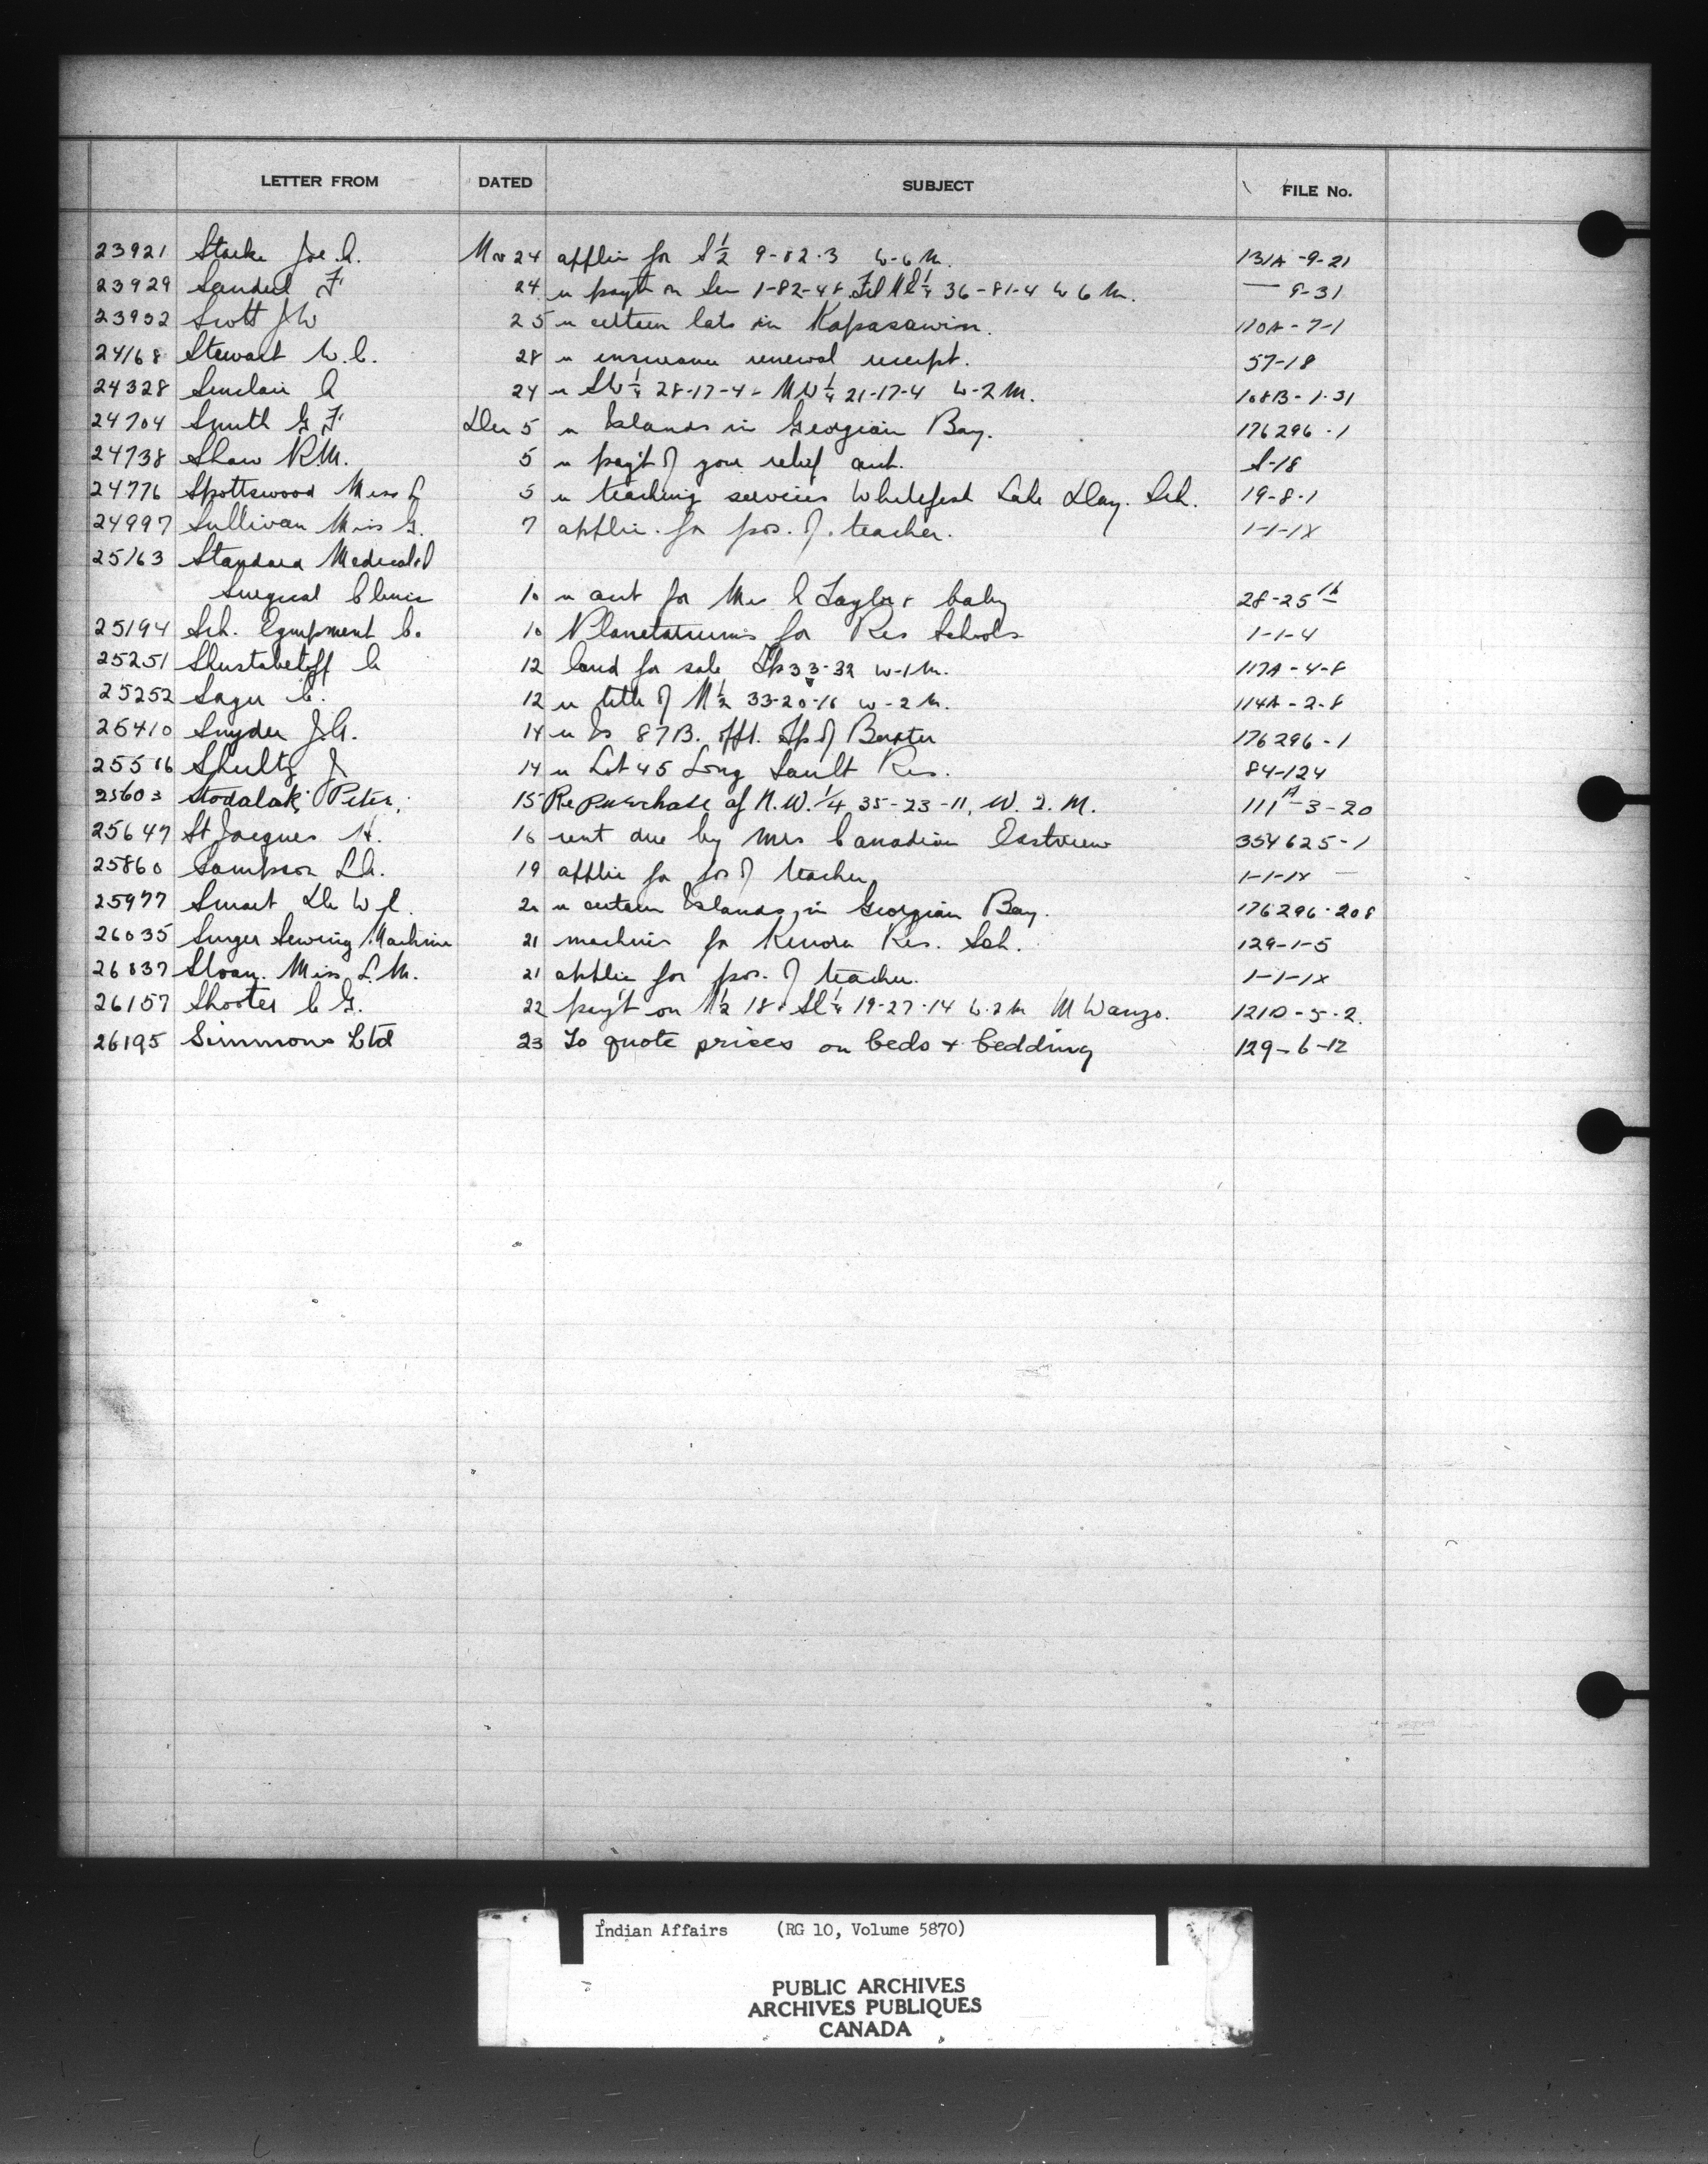 LETTER FROM DATED SUBJECT FILE No.
23921 Starke Joe. A. Nov 24 applic for S½ 9-82-3 W-6 M. 131A-9-21
23929 F 24 re payt on Sec 1-82-4 & ¼ 36-81-4 W 6 M. — 9-31
23932 Scott J W 25 re certain lots in Kapasawin. 110A-7-1
24168 Stewart W.C. 28 re insurance renewal receipt. 57-18
24328 Sinclair A 24 re SW¼ 28-17-4 - NW¼ 21-17-4 W-2 M. 108B-1-31
24704 Smith G F Dec 5 re Islands in Georgian Bay. 176296-1
24738 Shaw R.M. 5 re pay't of your relief acct. S-18
24776 Spottswood Miss L 5 re teaching services Whitefish Lake Day. Sch. 19-8-1
24997 Sullivan Miss G. 7 applic. for pos. of. teacher. 1-1-1X
25163 Standard Medical &
Surgical Clinic 10 re acct for Mrs A Taylor & baby 28-25
25194 Sch. Equipment Co. 10 Planetariums for Res Schools 1-1-4
25251 Shustabetoff C 12 land for sale Tp 33-32 W-1 M. 117A-4-8
25252 Sager C. 12 re title of N½ 33-20-16 W-2 M. 114A-2-8
25410 Snyder J.A. 14 re Is 87B. opp. Tp of Baxter 176296-1
25516 Shultz J 14 re Lot 45 Long Sault Res. 84-124
25603 Stodalak, Peter, 15 Re purchase of N.W. 1/4 35-23-11, W. 2. M. 111A-3-20
25647 St Jacques H. 16 rent due by Mrs Canadian Eastview 354625-1
25860 Sampson L.A. 19 applic for pos of teacher 1-1-1X —
25977 Smart Dr W A. 20 re certain Islands in Georgian Bay. 176296-208
26035 Singer Sewing Machine 21 machines for Kenora Res. Sch. 129-1-5
26037 Sloan. Miss L.M. 21 applic for pos. of teacher. 1-1-1X
26157 Shooter C G. 22 pay't on N½ 18 & SE¼ 19-27-14 W-2 M M Wanzo. 121D-5-2.
26195 Simmons Ltd 23 To quote prices on beds & bedding 129-6-12
Indian Affairs (RG 10, Volume 5870)
PUBLIC ARCHIVES
ARCHIVES PUBLIQUES
CANADA